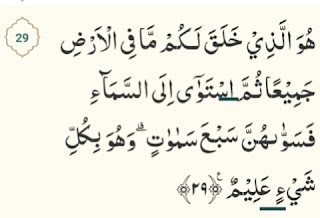 29
هُوَ الَّذِيْ خَلَقَ لَكُمْ مَّا فِى الْاَرْضِ
جَمِيْعًا ثُمَّ اسْتَوٰٓى اِلَى السَّمَآءِ
فَسَوّٰىهُنَّ سَبْعَ سَمٰوٰتٍ ۗ وَهُوَ بِكُلِّ
شَيْءٍ عَلِيْمٌ ࣖ ﴿٢٩﴾